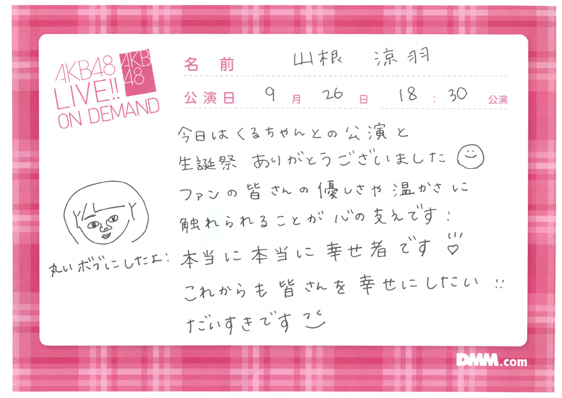 AKB48
LIVE!!
ON DEMAND
AKB
48
名前 山根 涼羽
公演日 9月 26日 18:30 公演
今日は くるちゃんとの 公演と
生誕祭 ありがとうございました
ファンの 皆さんの 優しさや 温かさに
触れられることが 心の 支えです!
本当に 本当に 幸せ者です
これからも 皆さんを 幸せにしたい !!
だいすきです
丸いボブにしたエ:
DMM.com